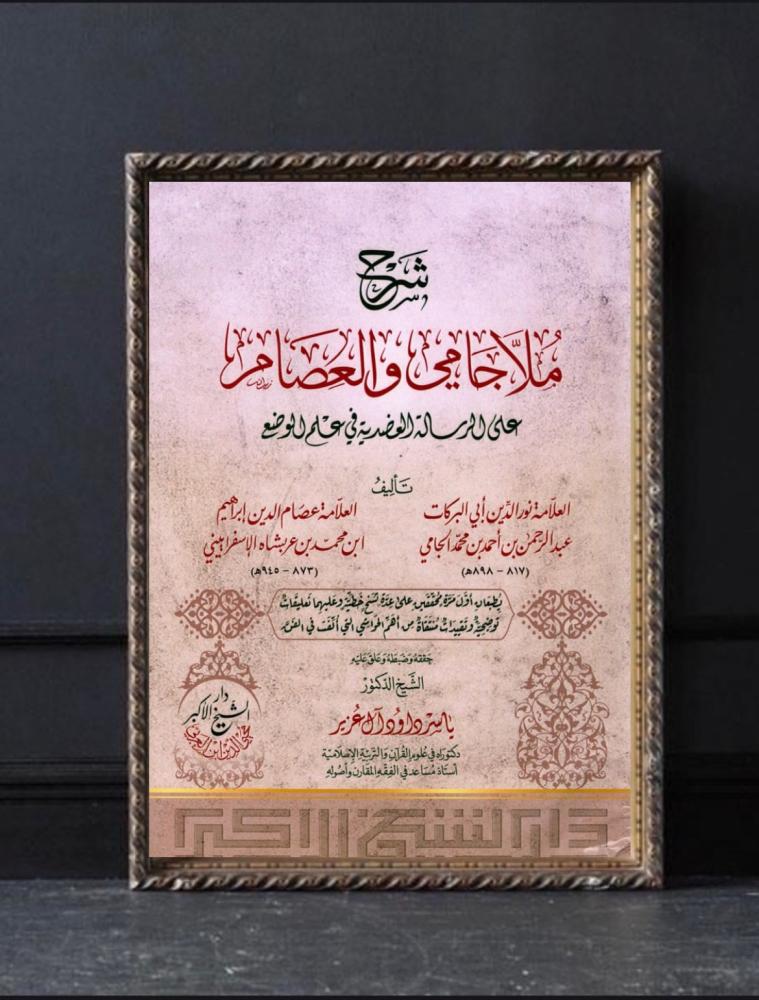 شرح
مُلَّا جَامِي وَالعِصَام
على الرسالة العضدية في علم الوضع
تأليفُ
العلّامة نور الدِّين أبي البركات
عبد الرحمٰن بن أحمد بن محمّد الجامي
(٨١٧ – ٨٩٨هـ)
العلّامة عصام الدين إبراهيم
ابن محمّد بن عربشاه الإسفراييني
(٨٧٣ – ٩٤٥هـ)
يُطبعان أوّل مرّة محقّقين على عدّة نسخ خطيّة وعليهما تعليقات
توضيحيّة وتقييدات منتقاة من أهمّ الحواشي التي أُلّفت في الفنّ
حققه وضبطه وعلق عليه
الشّيخ الدّكتور
ياسر داود آل عُزير
دكتوراه في علوم القرآن والتربية الإسلامية
أستاذ مساعد في الفقه المقارن وأصوله
دار
الشيخ الأكبر
محيي الدين ابن العربي
دار الشيخ الأكبر